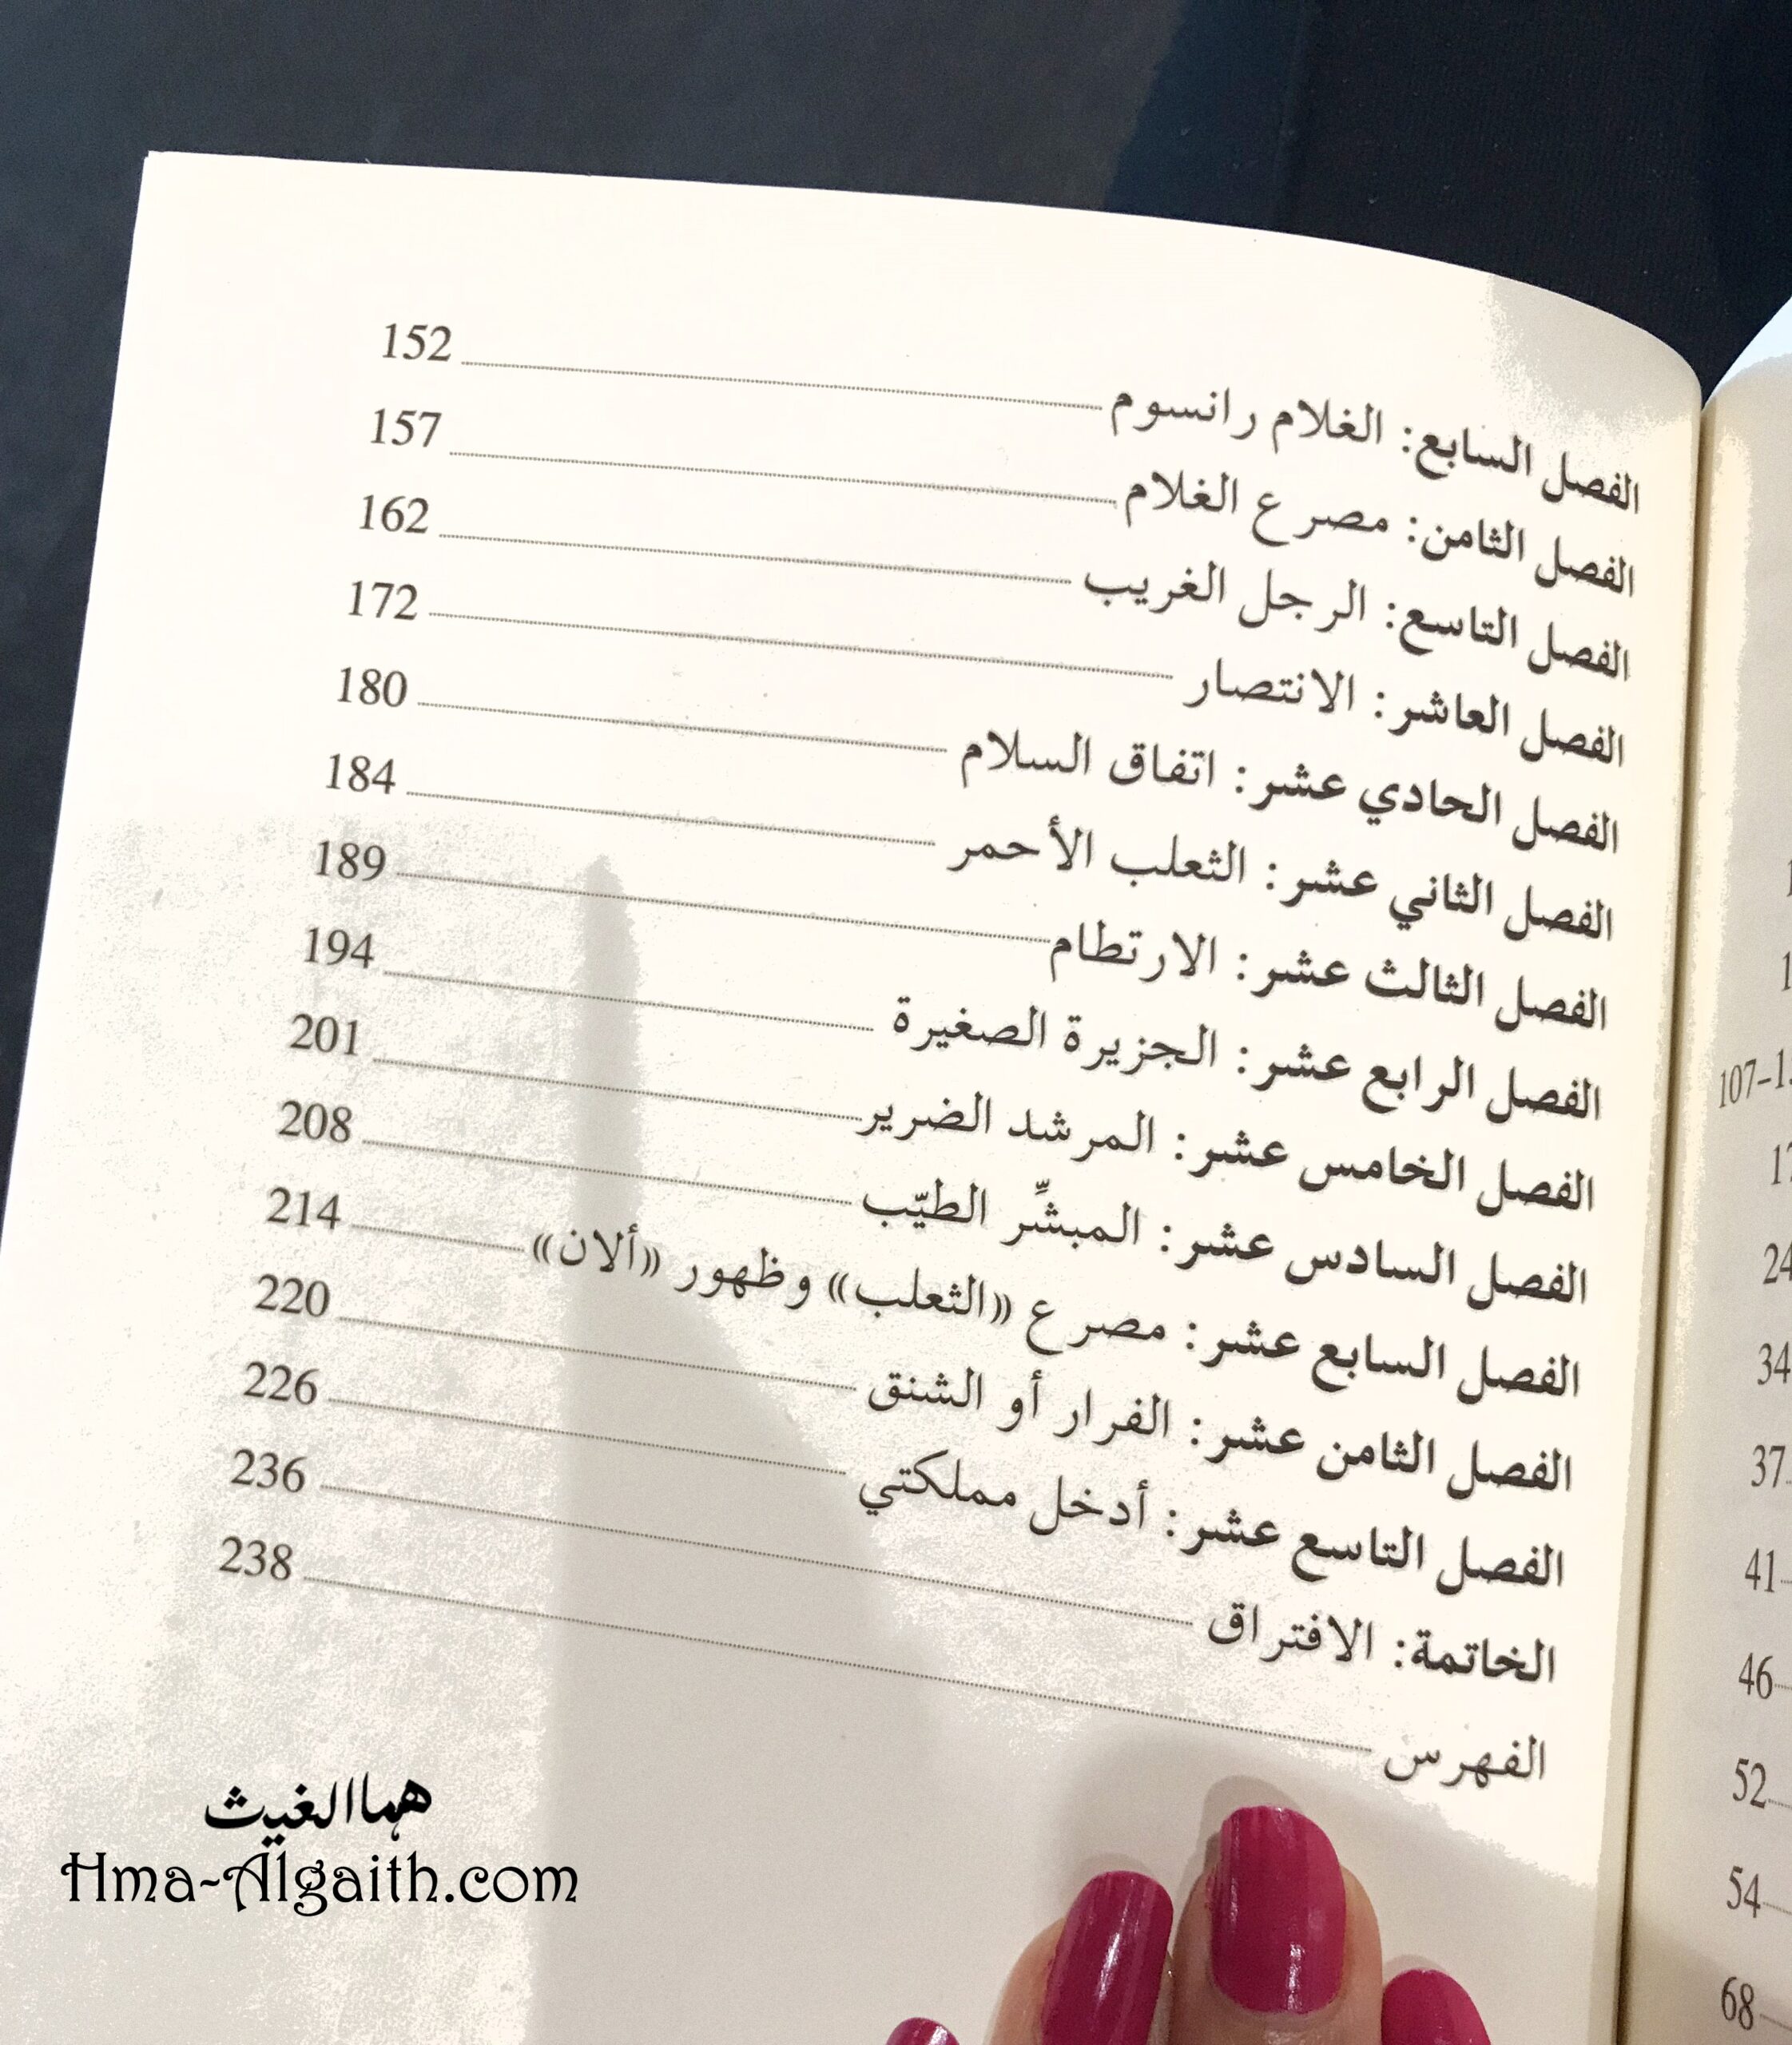 الفصل السابع: الغلام رانسوم 152
الفصل الثامن: مصرع الغلام 157
الفصل التاسع: الرجل الغريب 162
الفصل العاشر: الانتصار 172
الفصل الحادي عشر: اتفاق السلام 180
الفصل الثاني عشر: الثعلب الأحمر 184
الفصل الثالث عشر: الارتطام 189
الفصل الرابع عشر: الجزيرة الصغيرة 194
الفصل الخامس عشر: المرشد الضرير 201
الفصل السادس عشر: المبشِّر الطيّب 208
الفصل السابع عشر: مصرع «الثعلب» وظهور «ألان» 214
الفصل الثامن عشر: الفرار أو الشنق 220
الفصل التاسع عشر: أدخل مملكتي 226
الخاتمة: الافتراق 236
الفهرس 238
هما الغيث
Hma-Algaith.com
24
34
37
41
46
52
54
68